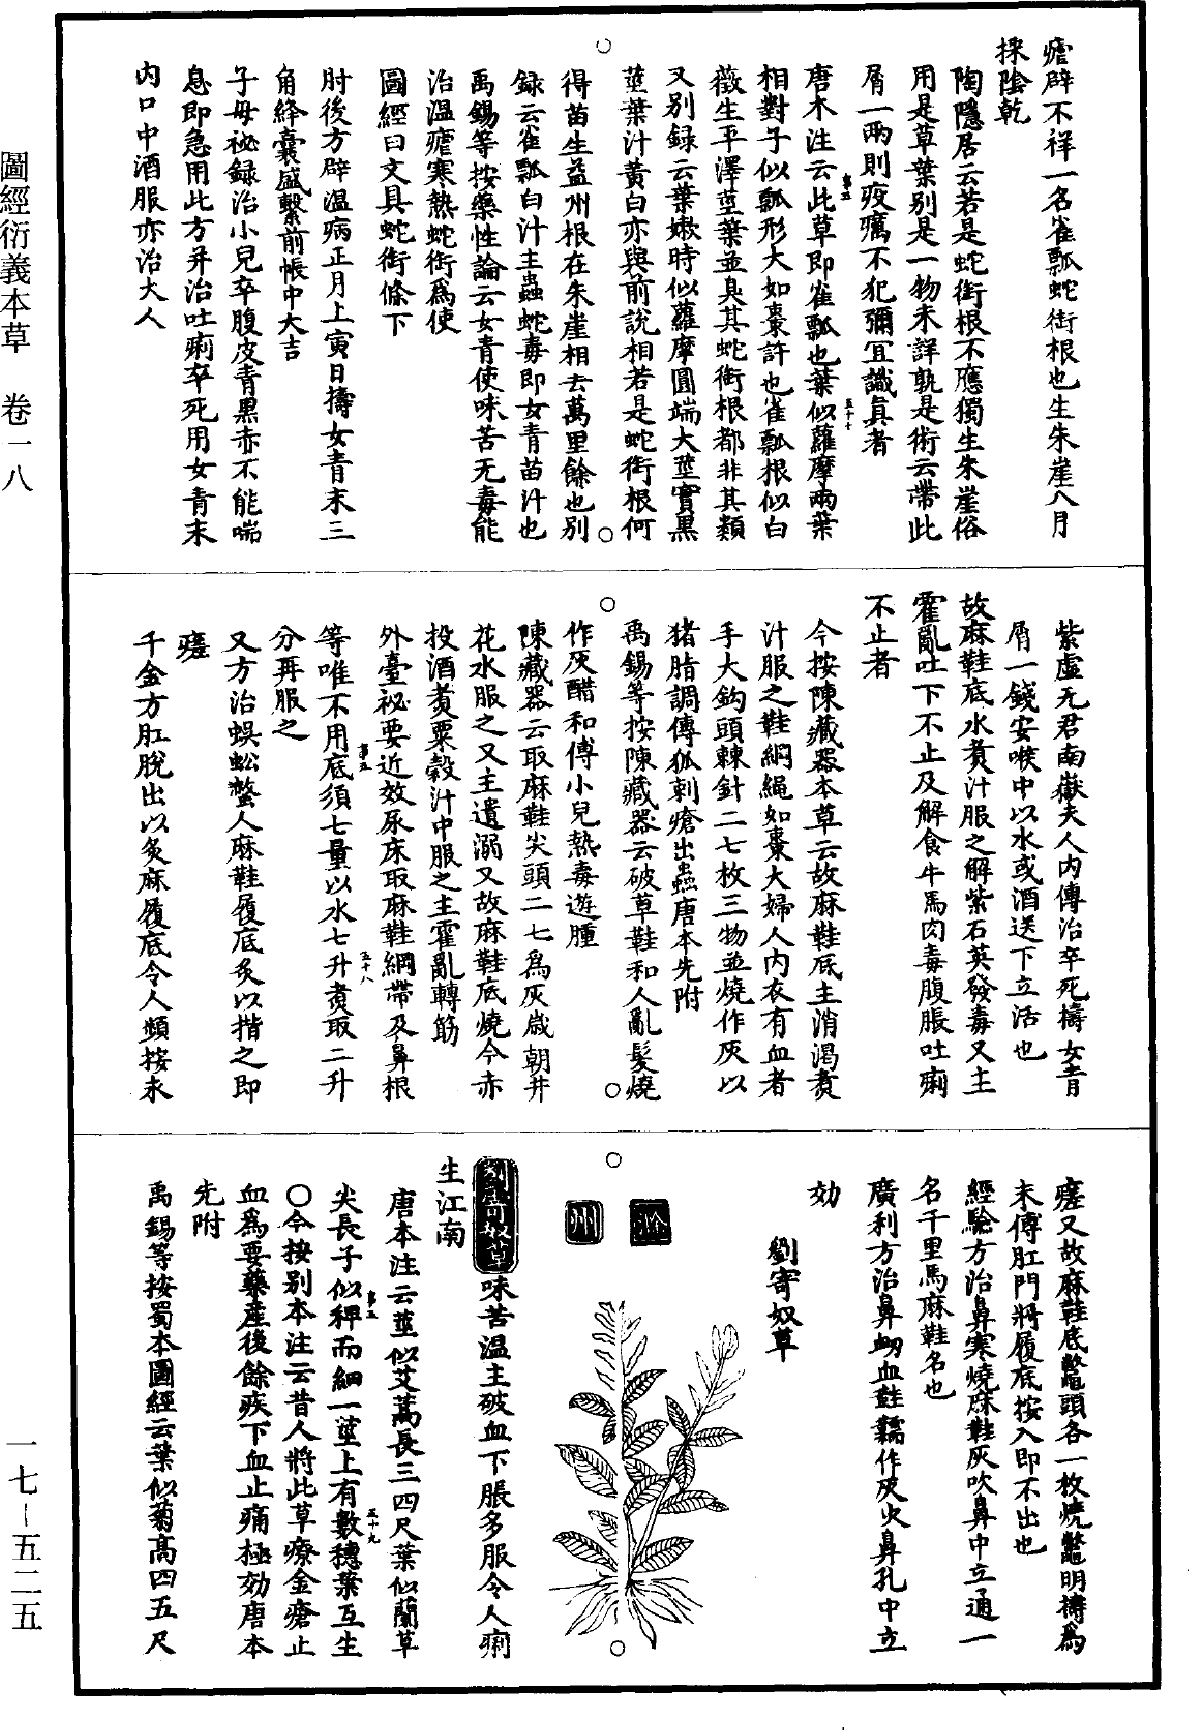 瘧辟不祥一名雀瓢蛇銜根也生朱崖八月
採陰乾
陶隱居云若是蛇銜根不應獨生朱崖俗
用是草葉别是一物未詳孰是術云帶此
屑一兩則疫癘不犯彌宜識真者
唐木注云此草即雀瓢也葉似蘿摩兩葉
相對子似瓢形大如棗許也雀瓢根似白
薇生平澤莖葉並臭其蛇銜根都非其類
又别録云葉嫩時似蘿摩圓端大莖實黑
莖葉汁黄白亦與前說相若是蛇銜根何
得苗生益州根在朱崖相去萬里餘也别
録云雀瓢白汁主蟲蛇毒即女青苗汁也
禹錫等按藥性論云女青使味苦无毒能
治温瘧寒熱蛇銜爲使
圖經曰文具蛇銜條下
肘後方辟温病正月上寅日擣女青末三
角絳囊盛繫前帳中大吉
子母祕録治小兒卒腹皮青黑赤不能喘
息即急用此方并治吐痢卒死用女青末
内口中酒服亦治大人
紫虚无君南嶽夫人内傳治卒死擣女青
屑一錢安喉中以水或酒送下立活也
故麻鞋底水煑汁服之解紫石英發毒又主
霍亂吐下不止及解食牛馬肉毒腹脹吐痢
不止者
今按陳藏器本草云故麻鞋底主消渇煑
汁服之鞋綱繩如棗大婦人内衣有血者
手大鈎頭棘針二七枚三物並燒作灰以
猪脂調傅狐刺瘡出蟲唐本先附
禹錫等按陳藏器云破草鞋和人亂髮燒
作灰醋和傅小兒熱毒遊腫
陳藏器云取麻鞋尖頭二七爲灰歲朝井
花水服之又主遺溺又故麻鞋底燒令赤
投酒煑粟穀汁中服之主霍亂轉筋
外臺祕要近效尿床取麻鞋綱帶及鼻根
等唯不用底須七量以水七升煑取二升
分再服之
又方治蜈蚣螫人麻鞋履底炙以揩之即
瘥
千金方肛脫出以炙麻履底令人頻按永
瘥又故麻鞋底鼈頭各一枚燒鼈明擣爲
末傅肛門將履底按入即不出也
經驗方治鼻寒燒麻鞋灰吹鼻中立通一
名千里馬麻鞋名也
廣利方治鼻衂血鞋䩺作灰火鼻孔中立
効
劉寄奴草
滁
州
劉寄奴草味苦温主破血下脹多服令人痢
生江南
唐本注云莖似艾蒿長三四尺葉似蘭草
尖長子似稗而細一莖上有數穗葉互生
○今按别本注云昔人將此草療金瘡止
血爲要藥產後餘疾下血止痛極効唐本
先附
禹錫等按蜀本圖經云葉似菊高四五尺
事五
五十七
事五
五十八
事五
五十九
圖經衍義本草 卷一八
一七—五二五